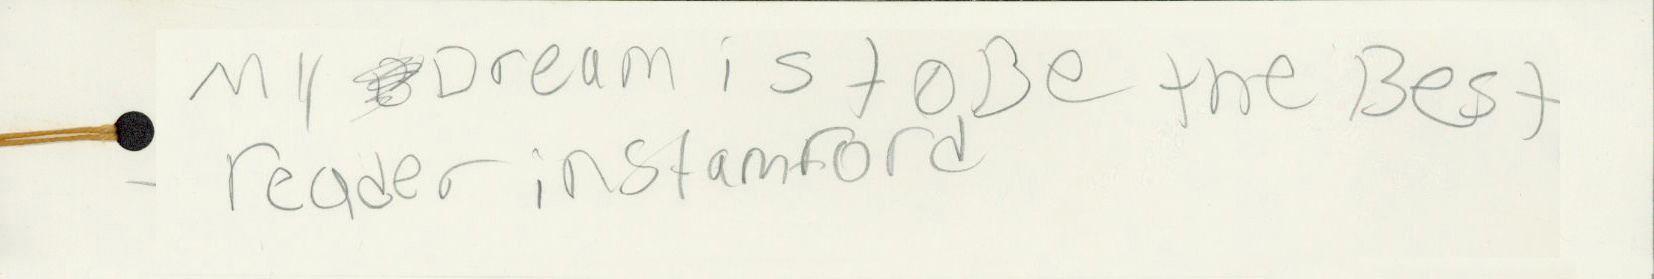 My Dream is to Be the Best
reader in Stamford